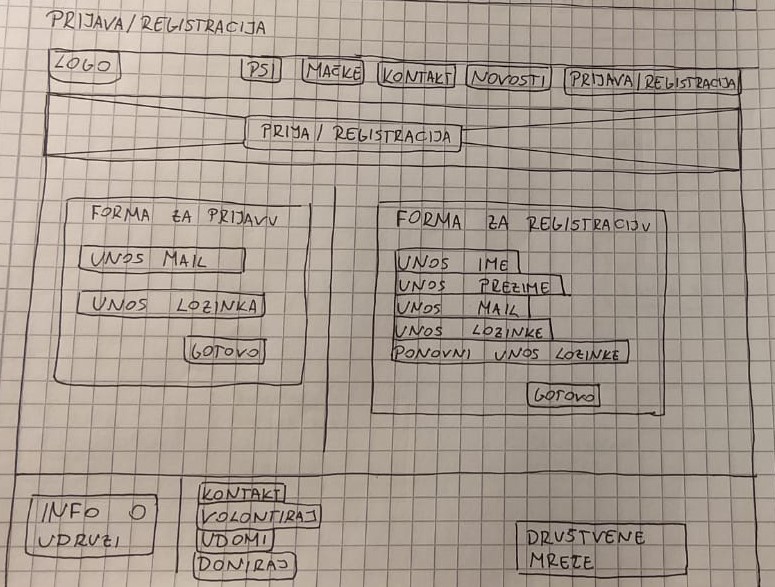 PRIJAVA/REGISTRACIJA
LOGO PSI MAČKE KONTAKT NOVOSTI PRIJAVA/REGISTRACIJA
PRIJA / REGISTRACIJA
FORMA ZA PRIJAVU
UNOS MAIL
UNOS LOZINKA
GOTOVO
FORMA ZA REGISTRACIJU
UNOS IME
UNOS PREZIME
UNOS MAIL
UNOS LOZINKE
PONOVNI UNOS LOZINKE
GOTOVO
INFO O
UDRUZI
KONTAKT
VOLONTIRAJ
UDOMI
DONIRAJ
DRUŠTVENE
MREŽE